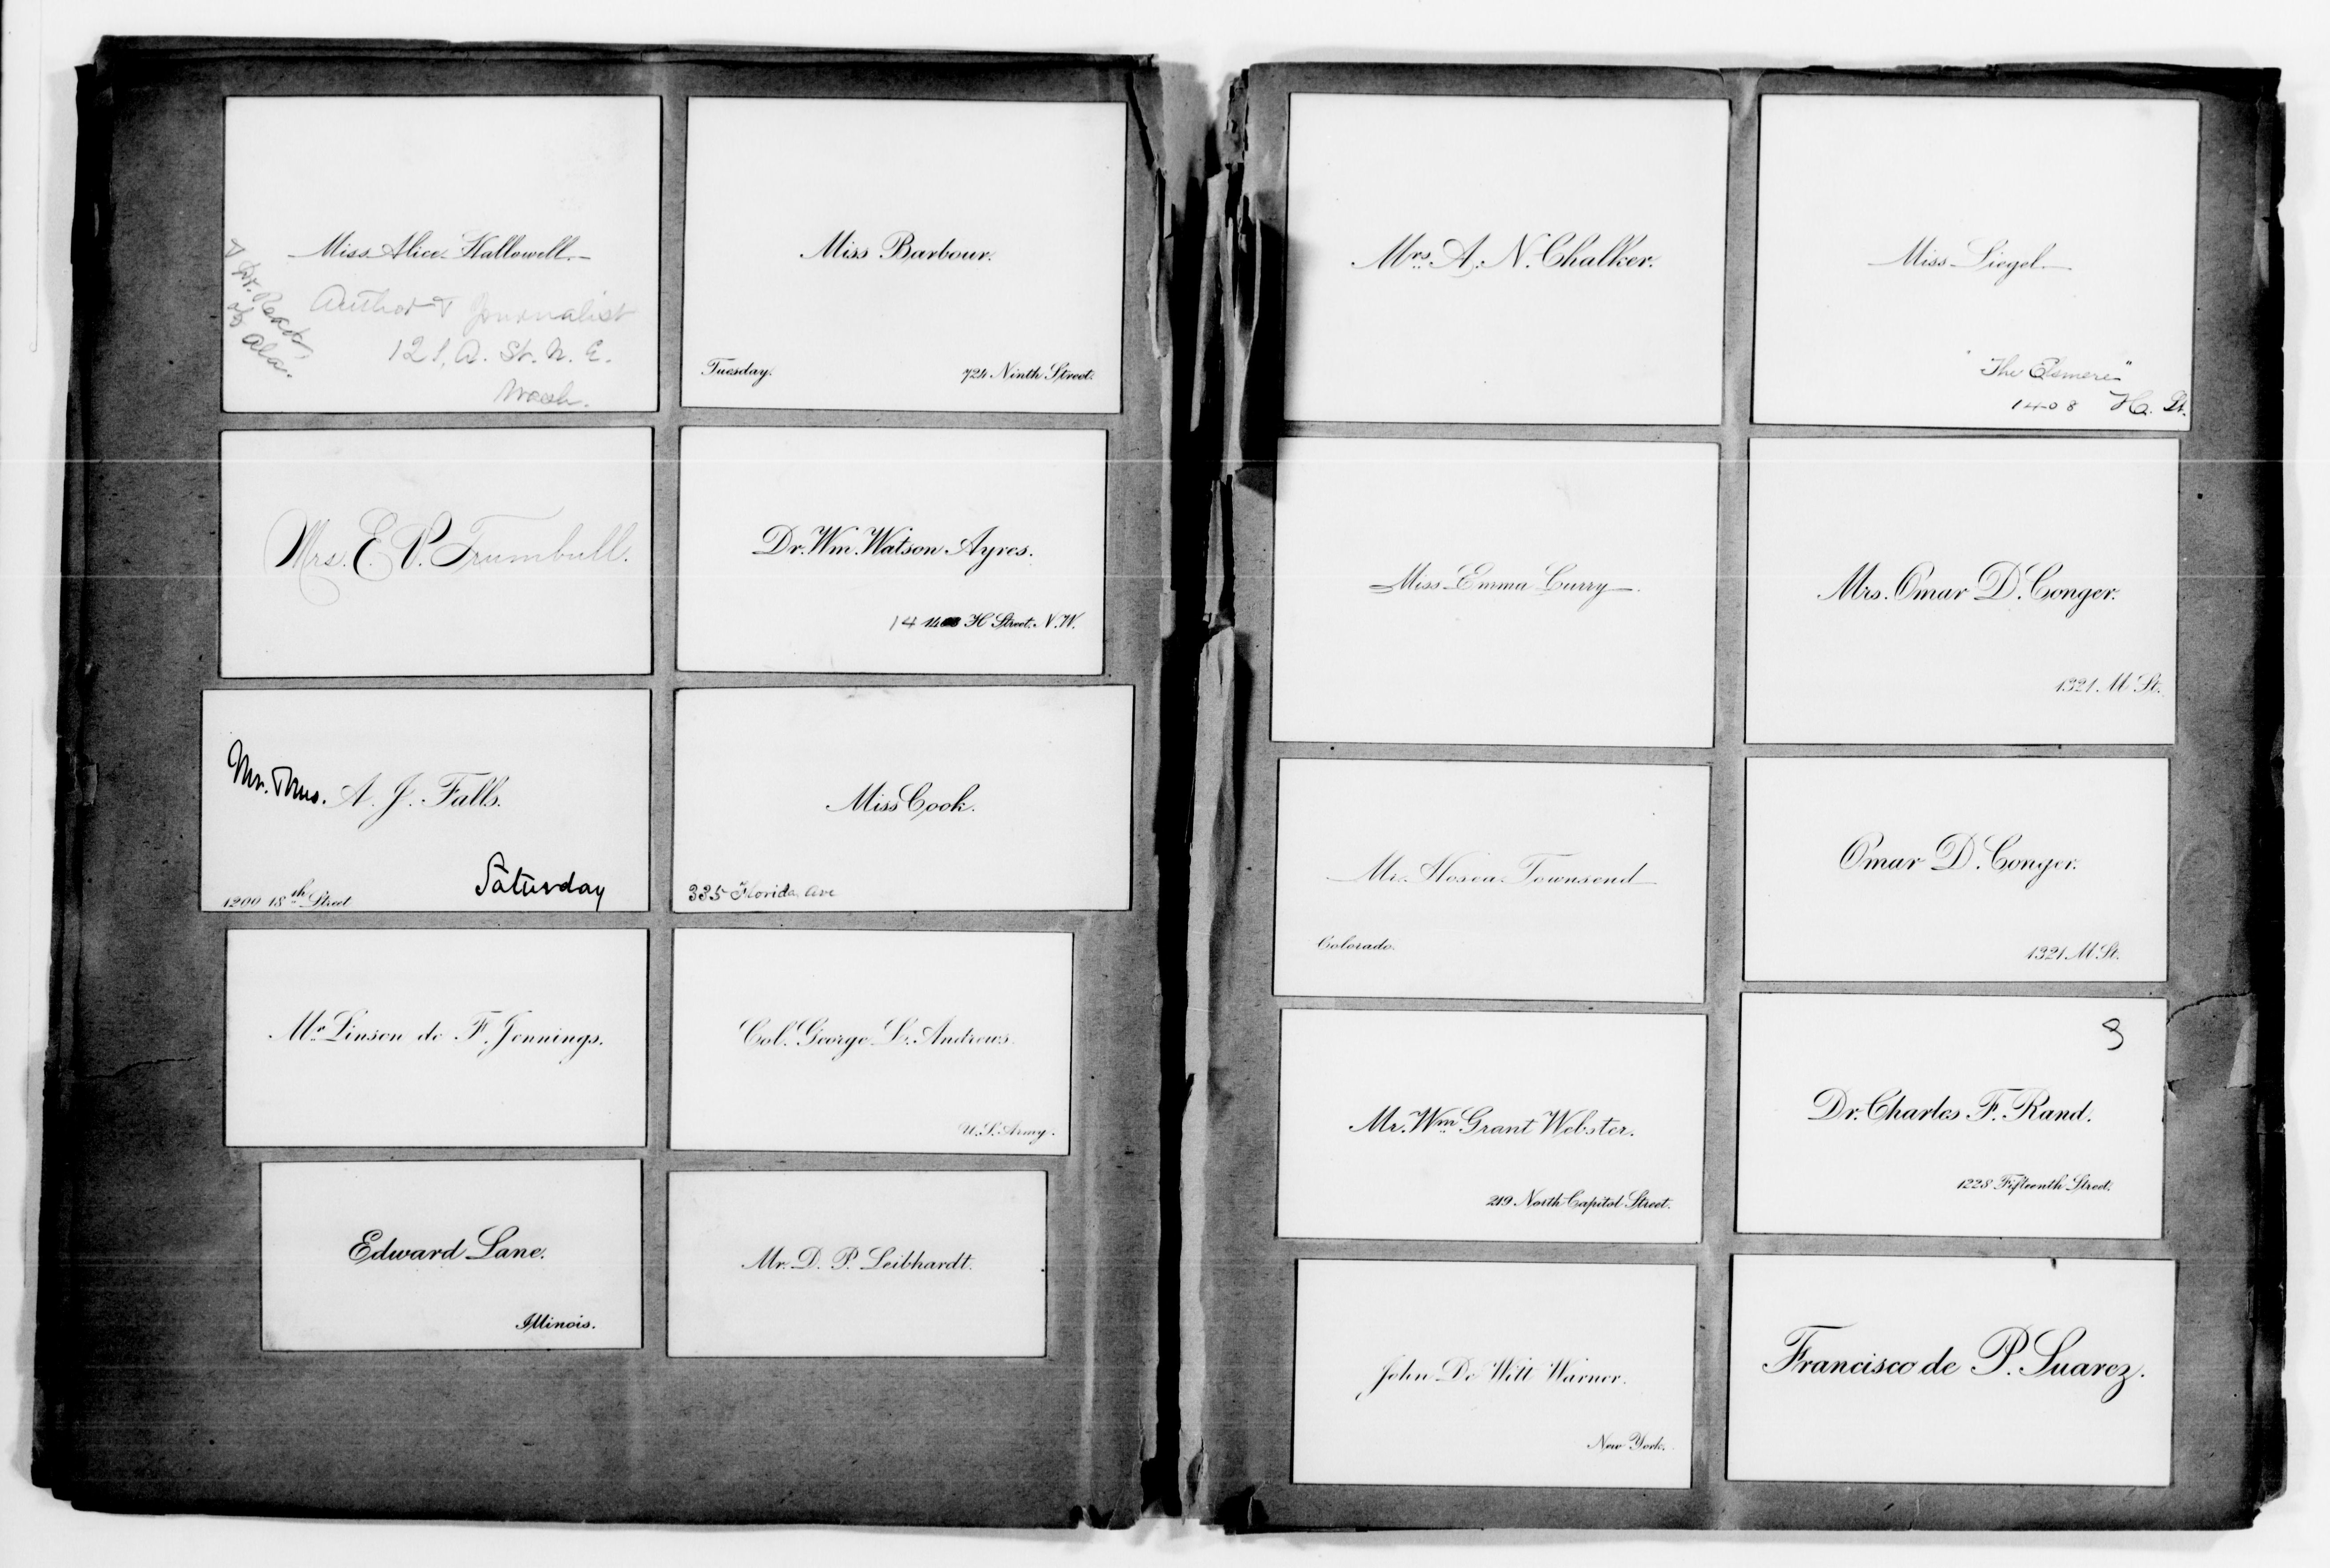 Miss Alice Hallowell.
& Dr. Read,
of Ala.
Author & Journalist
121, A. St. N. E.
Wash.
Miss Barbour.
Tuesday.
724 Ninth Street.
Mrs. E. P. Trumbull.
Dr. Wm. Watson Ayres.
14 H Street. N.W.
Mr. & Mrs. A. J. Falls.
Saturday
1200 18th Street
Miss Cook.
335 Florida Ave
Mr. Linson de F. Jennings.
Col. George L. Andrews.
U.S. Army.
Edward Lane.
Illinois.
Mr. D. P. Leibhardt.
Mrs. A. N. Chalker.
Miss Siegel.
"The Elsmere"
1408 H. St.
Miss Emma Curry.
Mrs. Omar D. Conger.
1321 M St.
Mr. Hosea Townsend
Colorado.
Omar D. Conger.
1321 M St.
Mr. Wm. Grant Webster.
219 North Capitol Street.
Dr. Charles F. Rand.
1228 Fifteenth Street.
John De Witt Warner.
New York.
Francisco de P. Suarez.